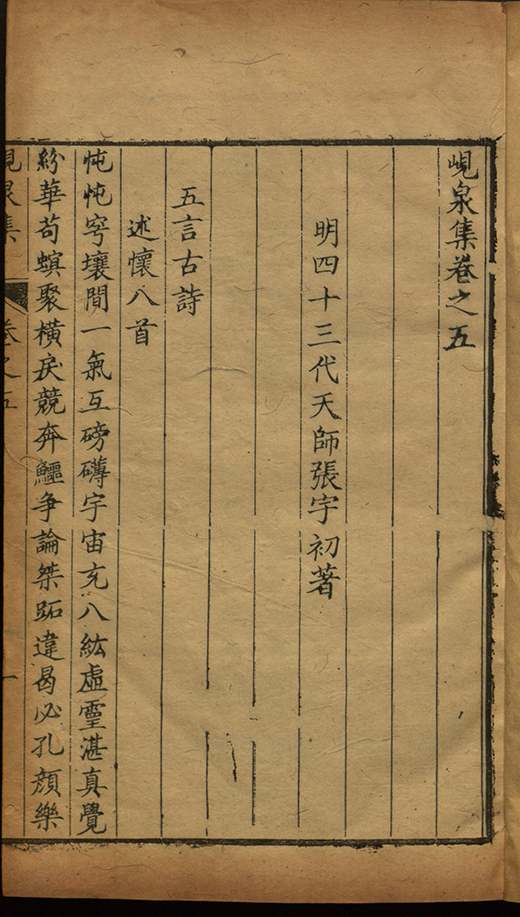 峴泉集卷之五
明四十三代天師張宇初著
五言古詩
述懷八首
忳忳穹壤間一氣互磅礴宇宙充八紘虛靈湛真覺
紛華苟螾聚橫戾競奔鱷爭論桀跖違曷必孔顏樂
峴泉集 卷之五 一